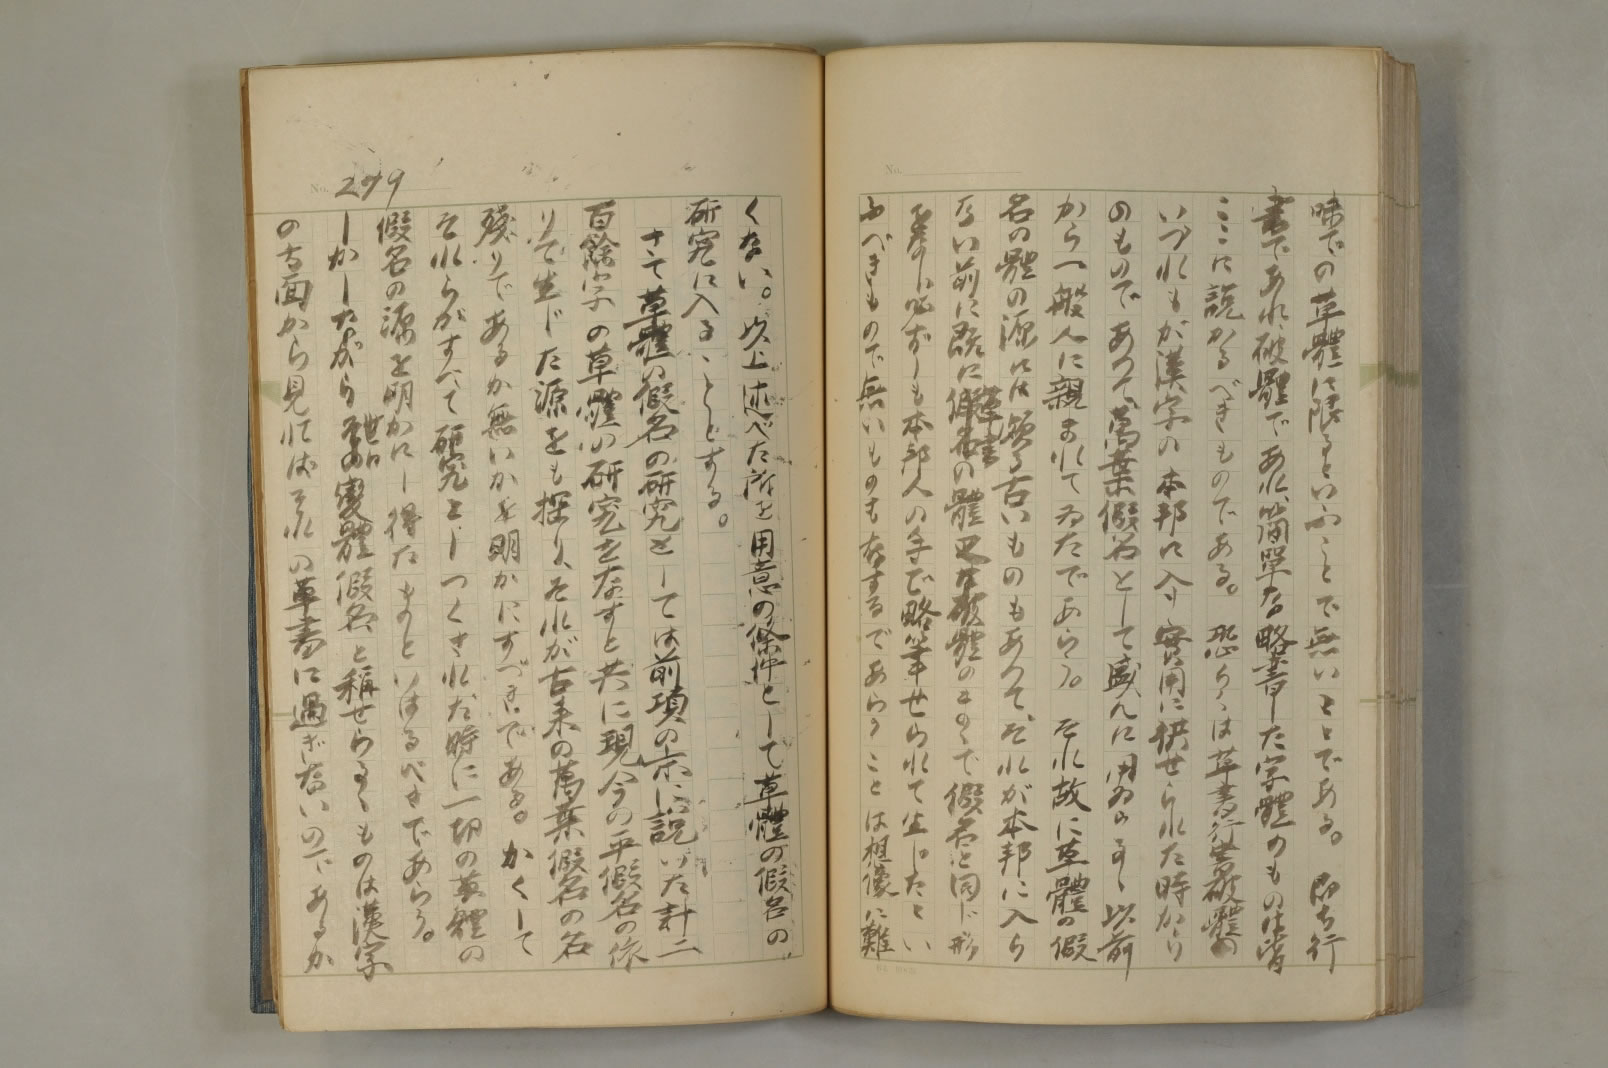 味での草體に限るといふことで無いことである。即ち行
書であれ、破體であれ、簡單な略書した字體のものは皆
ここに説かるべきものである。恐らくは草書行書破體の
いづれもが漢字の本邦に入り實用に供せられた時から
のものであつて、萬葉假名として盛んに用ゐ以前
から一般人に親まれてゐたであらう。それ故に草體の假
名の體の源には頗る古いものもあつて、それが本邦に入ら
ない前に既に草書の體又は破體のもので假名と同じ形
必ずしも本邦人の手で略筆せられて生じたとい
ふべきもので無いものも存するであらうことは想像に難
No. 279
くない。以上述べた所を用意の條件として草體の假名の
研究に入ることとする。
さて草體の假名の研究としては前項の末に説いた計二
百餘字の草體の研究をなすと共に現今の平假名の依
りて生じた源をも探り、それが古來の萬葉假名の名
殘りであるか無いかを明かにすべきである。かくして
それらがすべて研究しつくされた時に一切の草體の
假名の源を明かにし得たものといはるべきであらう。
しかしながら世の變體假名と稱せらるゝものは漢字
の方面から見ればそれの草書に過ぎないのであるか